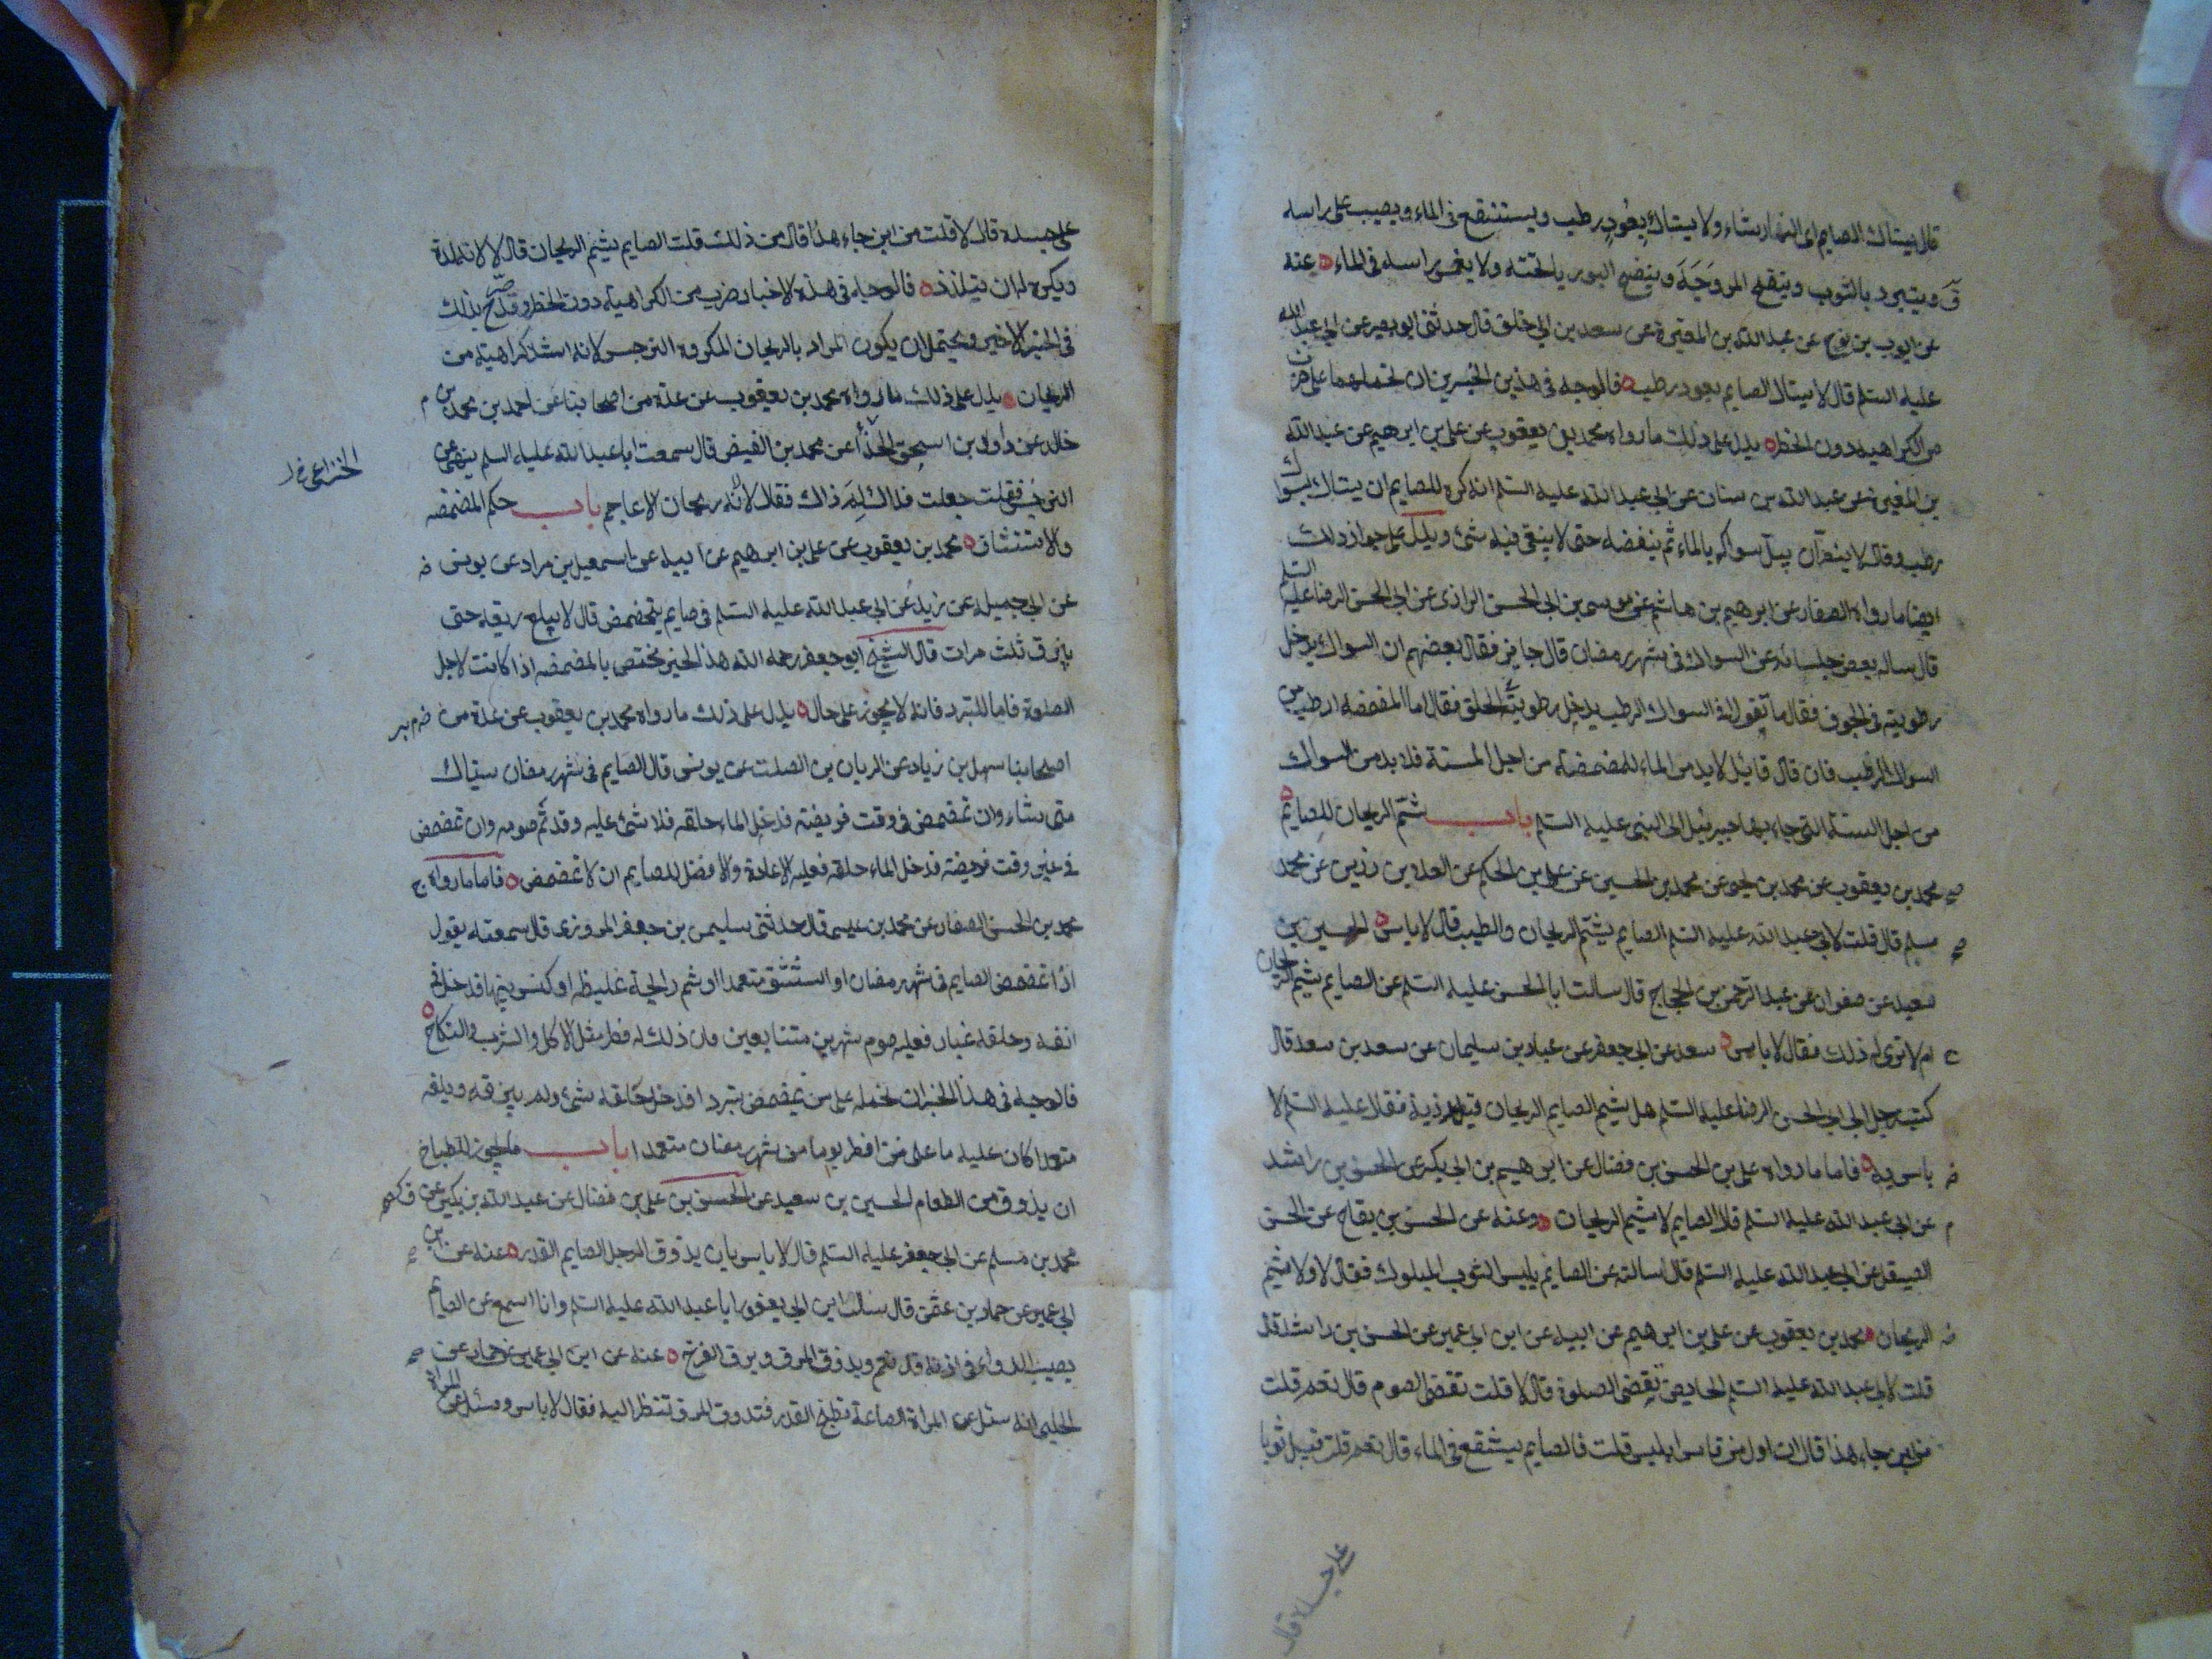 قال يستاك الصايم اى النهار شاء ولا يستاك بعود رطب ويستنقع فى الماء ويصب على راسه
ويتبرد بالثوب وينضح المروحة وينضح البوريا تحته ولا يغمس راسه فى الماء ه عنه
عن ايوب بن نوح عن عبد الله بن المغيرة عن سعد بن ابى خلف قال حدثنى ابو بصير عن ابى عبد الله
عليه السلم قال لا يستاك الصايم بعود رطب ه فالوجه فى هذين الخبرين ان نحملهما على ضرب
من الكراهيه دون الحظر ه يدل على ذلك ما رواه محمد بن يعقوب عن على بن ابرهيم عن عبد الله
بن المغيرة عن عبد الله بن سنان عن ابى عبد الله عليه السلم انه كره للصايم ان يستاك بسواك
رطب وقال لا يضر ان يبل سواكه بالماء ثم ينفضه حتى لا يبقى فيه شئ ويدل على جواز ذلك
ايضا ما رواه الصفار عن ابرهيم بن هاشم عن موسى بن ابى الحسن الرازى عن ابى الحسن الرضا عليه السلم
قال ساله بعض جلسائه عن السواك فى شهر رمضان قال جايز فقال بعضهم ان السواك يدخل
رطوبته فى الجوف فقال ما تقول فى السواك الرطب يدخل رطوبته الحلق فقال الماء للمضمضة ارطب من
السواك الرطب فان قال قائل لا بد من الماء للمضمضة من اجل السنة فلا بد من السواك
من اجل السنة التى جاء بها جبرئيل الى النبى عليه السلم باب شم الريحان للصايم ه
محمد بن يعقوب عن محمد بن يحيى عن محمد بن الحسين عن على بن الحكم عن العلا بن رزين عن محمد
مسلم قال قلت لابى عبد الله عليه السلم الصايم يشم الريحان والطيب قال لا باس ه الحسين بن
سعيد عن صفوان عن عبد الرحمن بن الحجاج قال سالت ابا الحسن عليه السلم عن الصايم يشم الريحان
ام لا ترى له ذلك فقال لا باس ه سعد عن ابى جعفر عن عباد بن سليمان عن سعد بن سعد قال
كتب رجل الى ابى الحسن الرضا عليه السلم هل يشم الصايم الريحان فقال عليه السلم لا
باس به ه فاما ما رواه على بن الحسن بن فضال عن ابرهيم بن ابى بكر عن الحسن بن راشد
عن ابى عبد الله عليه السلم قال الصايم لا يشم الريحان ه وعنه عن الحسن بن بقاح عن الحسن
الصيقل عن ابى عبد الله عليه السلم قال سالته عن الصايم يلبس الثوب المبلول فقال لا ولا يشم
الريحان ه محمد بن يعقوب عن على بن ابرهيم عن ابيه عن ابن ابى عمير عن الحسن بن راشد قال
قلت لابى عبد الله عليه السلم الحايض تقضى الصلوة قال لا قلت تقضى الصوم قال نعم قلت
من اين جاء هذا قال ان اول من قاس ابليس قلت فالصايم يستنقع فى الماء قال نعم قلت فيبل ثوبا
على جسده قال
على جسده قال لا قلت من اين جاء هذا قال من ذلك قلت الصايم يشم الريحان قال لا لانه لذة
ويكره له ان يتلذذ ه فالوجه فى هذه الاخبار ضرب من الكراهية دون الحظر وقد صرح بذلك
فى الخبر الاخير ويحتمل ان يكون المراد بالريحان المكروه النرجس لانه اشد كراهية من
الريحان ه يدل على ذلك ما رواه محمد بن يعقوب عن عدة من اصحابنا عن احمد بن محمد بن
خالد عن داود بن اسحق الحذاء عن محمد بن الفيض قال سمعت ابا عبد الله عليه السلم ينهى عن
النرجس فقلت جعلت فداك لم ذاك فقال لانه ريحان الاعاجم باب حكم المضمضه
والاستنشاق ه محمد بن يعقوب عن على بن ابرهيم عن ابيه عن اسمعيل بن مراد عن يونس
عن ابى جميله عن زيد عن ابى عبد الله عليه السلم فى صايم يتمضمض قال لا يبلع ريقه حتى
يبزق ثلث مرات قال الشيخ ابو جعفر رحمه الله هذا الخبر يختص بالمضمضه اذا كانت لاجل
الصلوة فاما للتبرد فانه لا يجوز على حال ه يدل على ذلك ما رواه محمد بن يعقوب عن عدة من
اصحابنا سهل بن زياد عن الريان بن الصلت عن يونس قال الصايم فى شهر رمضان يستاك
متى شاء وان تمضمض فى وقت فريضته فدخل الماء حلقه فلا شئ عليه وقد تم صومه وان تمضمض
فى غير وقت فريضة فدخل الماء حلقه فعليه الاعادة والافضل للصايم ان لا تمضمض ه فاما ما رواه
محمد بن الحسن الصفار عن محمد بن عيسى قال حدثنى سليمن بن جعفر المروزى قال سمعته يقول
اذا تمضمض الصايم فى شهر رمضان او استنشق متعمدا او شم رايحة غليظه او كنس بيتا فدخل فى
انفه وحلقه غبار فعليه صوم شهرين متتابعين فان ذلك له فطر مثل الاكل والشرب والنكاح ه
فالوجه فى هذا الخبر ان نحمله على من تمضمض تبردا فدخل حلقه شئ ولم يبزقه وبلعه
متعمدا كان عليه ما على من افطر يوما من شهر رمضان متعمدا باب ما يجوز للطباخ
ان يذوق من الطعام الحسين بن سعيد عن الحسن بن على بن فضال عن عبد الله بن بكير عن
محمد بن مسلم عن ابى جعفر عليه السلم قال لا باس بان يذوق الرجل الصايم القدر ه عنه عن ابن
ابى عمير عن حماد بن عثمن قال سال ابن ابى يعفور ابا عبد الله عليه السلم وانا اسمع عن الصايم
يصب الدواء فى اذنه قال نعم ويذوق المرق ويزق الفرخ ه عنه عن ابن ابى عمير عن حماد عن
الحلبى انه سئل عن المراة الصائمة تطبخ القدر فتذوق المرق تنظر اليه فقال لا باس وسئل عن المراة